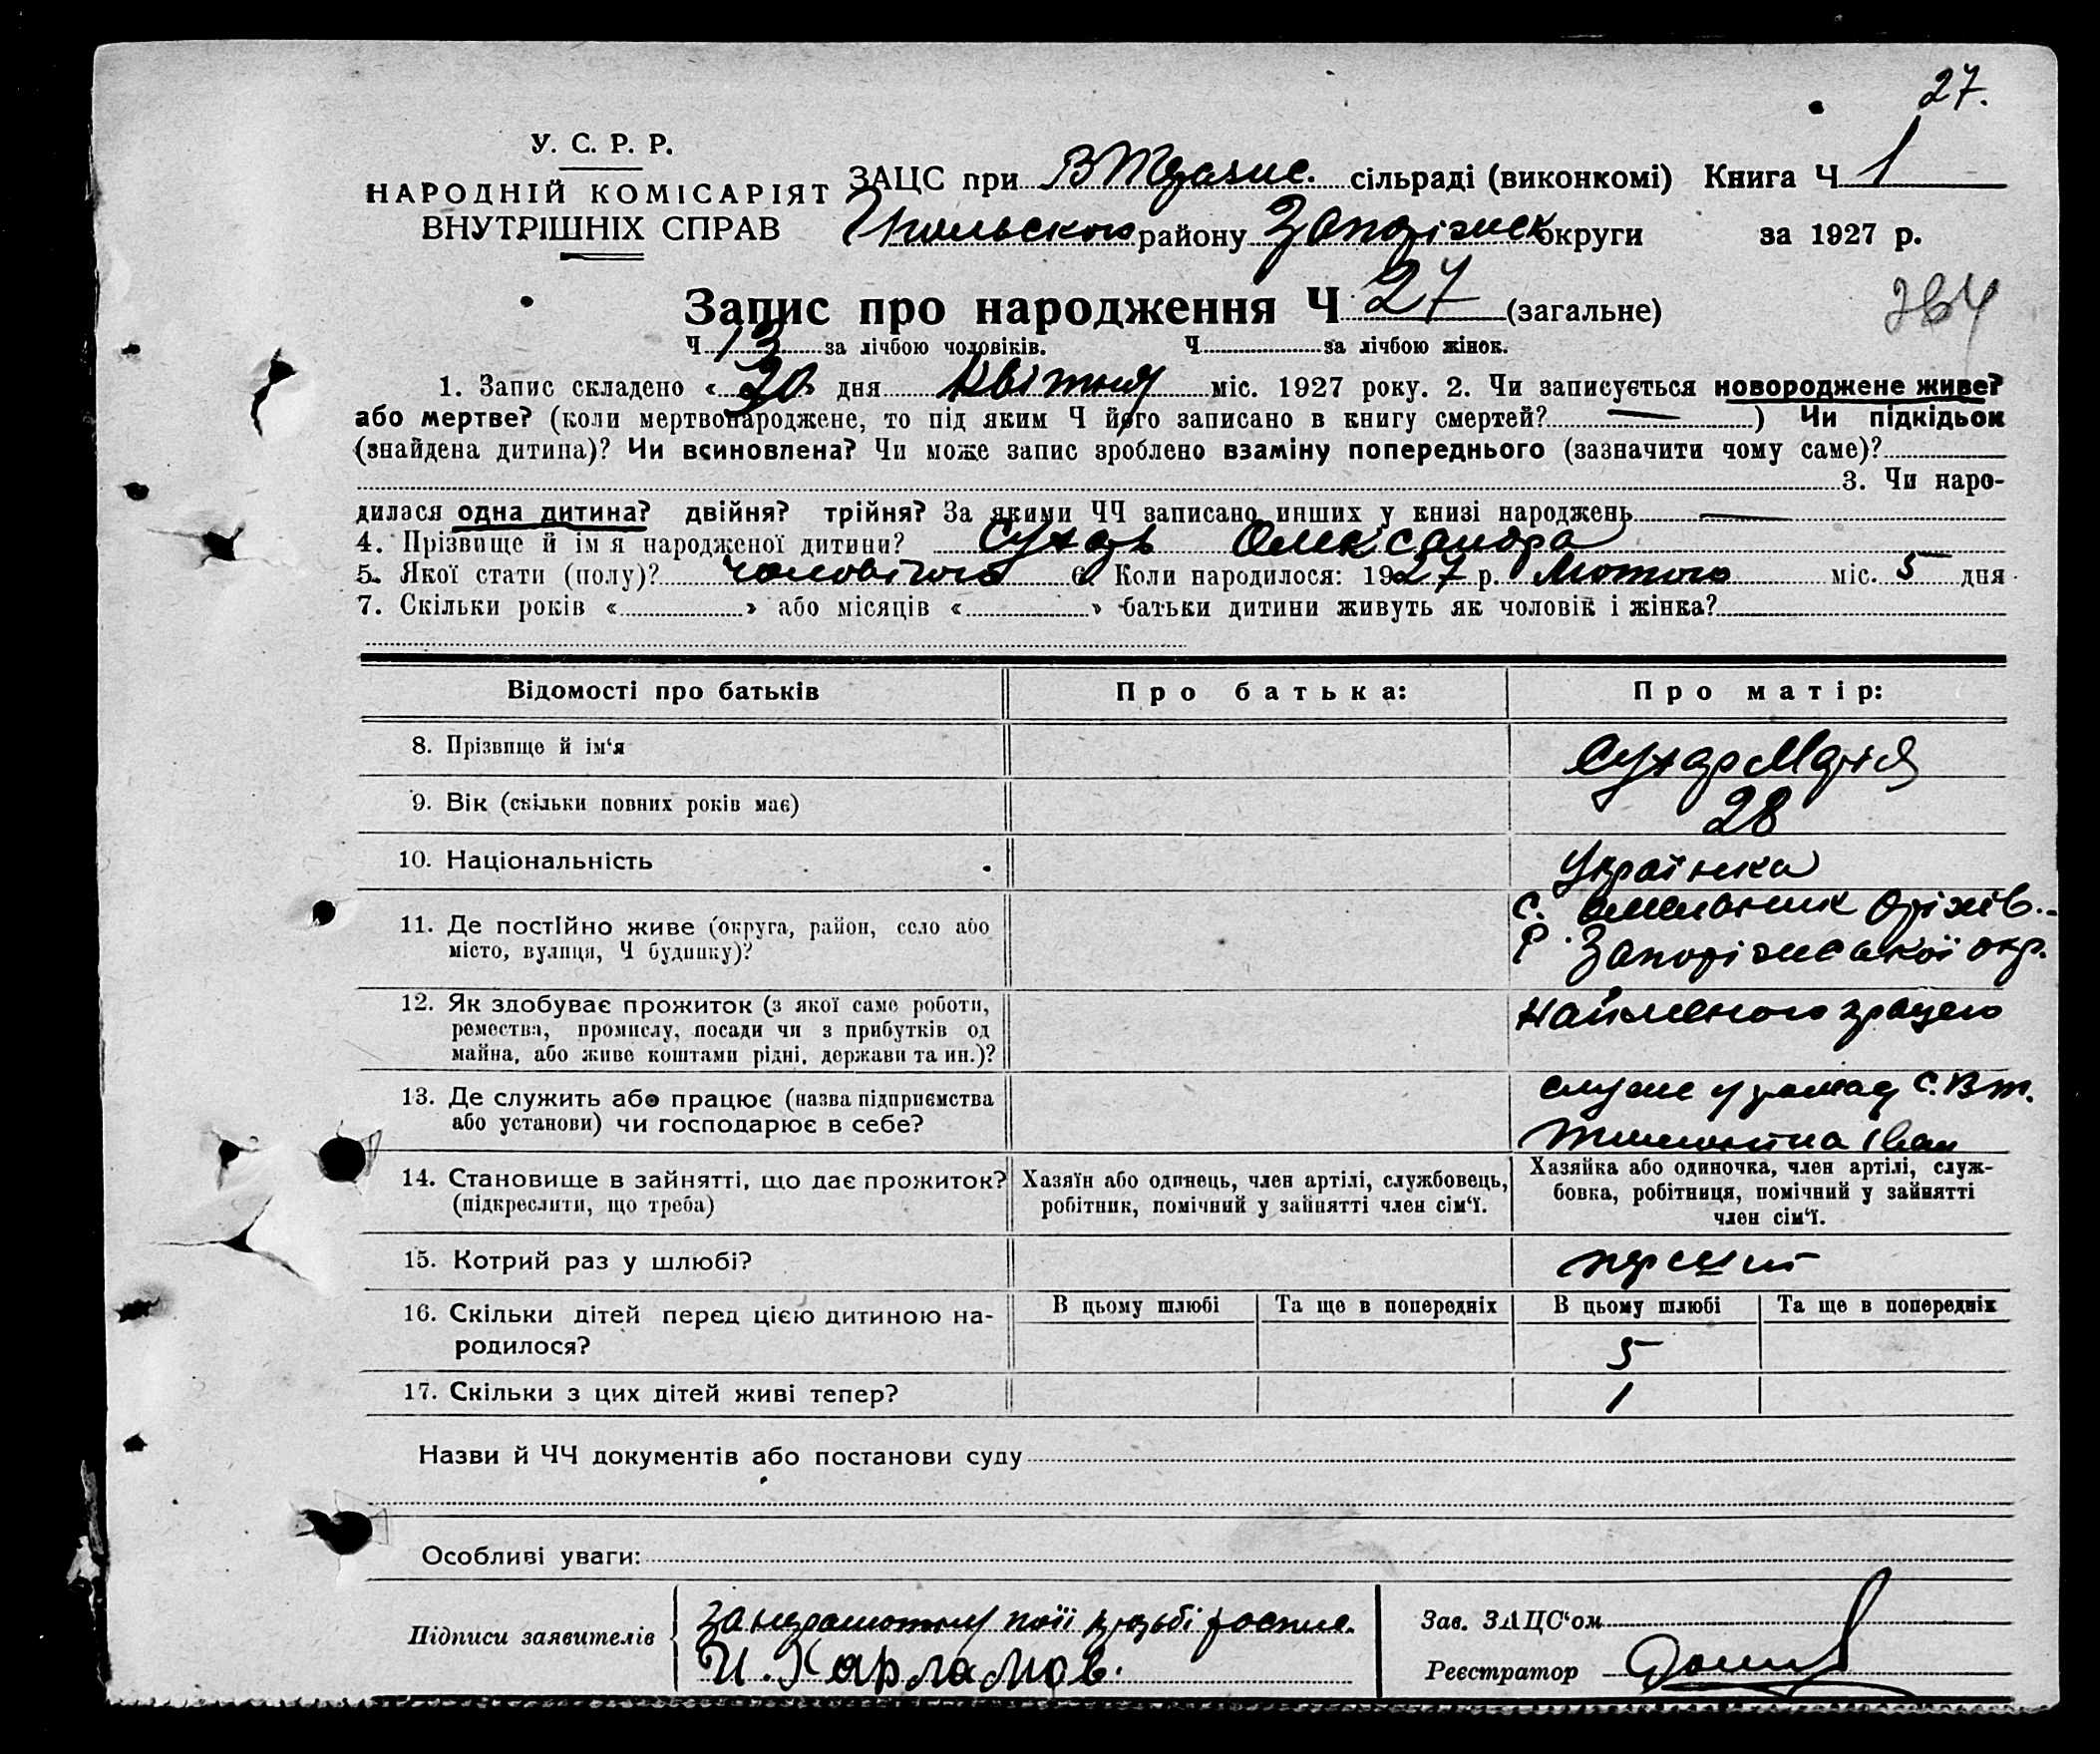 27.
У. С. Р. Р.
НАРОДНІЙ КОМІСАРІЯТ
ВНУТРІШНІХ СПРАВ
ЗАЦС при сільраді (виконкомі) Книга Ч 1
району Запоріжск округи за 1927 р.
Запис про народження Ч 27 (загальне)
Ч 13 за лічбою чоловіків. Ч за лічбою жінок.
1. Запис складено «20» дня квітня міс. 1927 року. 2. Чи записується новороджене живе?
або мертве? (коли мертвонароджене, то під яким Ч його записано в книгу смертей? —) Чи підкідьок
(знайдена дитина)? Чи всиновлена? Чи може запис зроблено взаміну попереднього (зазначити чому саме)?
3. Чи наро-
дилася одна дитина? двійня? трійня? За якими ЧЧ записано инших у книзі народжень —
4. Прізвище й ім я народженої дитини? Сухарь Олександра
5. Якої стати (полу)? чоловічого 6. Коли народилося: 1927 р. Лютого міс. 5 дня
7. Скільки років « » або місяців « » батьки дитини живуть як чоловік і жінка?
Відомості про батьків Про батька: Про матір:
8. Прізвище й ім'я Сухар Марія
9. Вік (скільки повних років має) 28
10. Національність Українка
11. Де постійно живе (округа, район, село або
місто, вулиця, Ч будинку)?
с. Оріхів..
Р. Запоріжської окр.
12. Як здобуває прожиток (з якої саме роботи,
ремества, промислу, посади чи з прибутків од
майна, або живе коштами рідні, держави та ин.)?
найменого працею
13. Де служить або працює (назва підприємства
або установи) чи господарює в себе?
служе у с. Вт.
Іван
14. Становище в зайнятті, що дає прожиток?
(підкреслити, що треба)
Хазяїн або одинець, член артілі, службовець,
робітник, помічний у зайнятті член сім'ї.
Хазяйка або одиночка, член артілі, служ-
бовка, робітниця, помічний у зайнятті
член сім'ї.
15. Котрий раз у шлюбі? перший
16. Скільки дітей перед цією дитиною на-
родилося?
В цьому шлюбі Та ще в попередніх В цьому шлюбі Та ще в попередніх
5
17. Скільки з цих дітей живі тепер? 1
Назви й ЧЧ документів або постанови суду
Особливі уваги:
Підписи заявителів
за неграмотну по її прозьбі
И. Харламов.
Зав. ЗАЦС'ом
Реєстратор